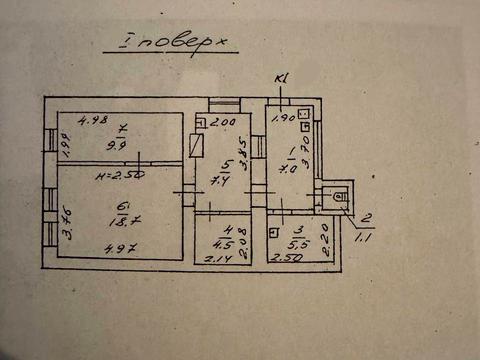 I поверх
к1
4.98
7
9.9
1.99
2.00
1.90
3.85
1
7.0
3.70
5
7.4
н=2.50
6
18.7
3.76
4.97
4
4.5
2.08
2.14
3
5,5
2.20
2.50
2
1.1